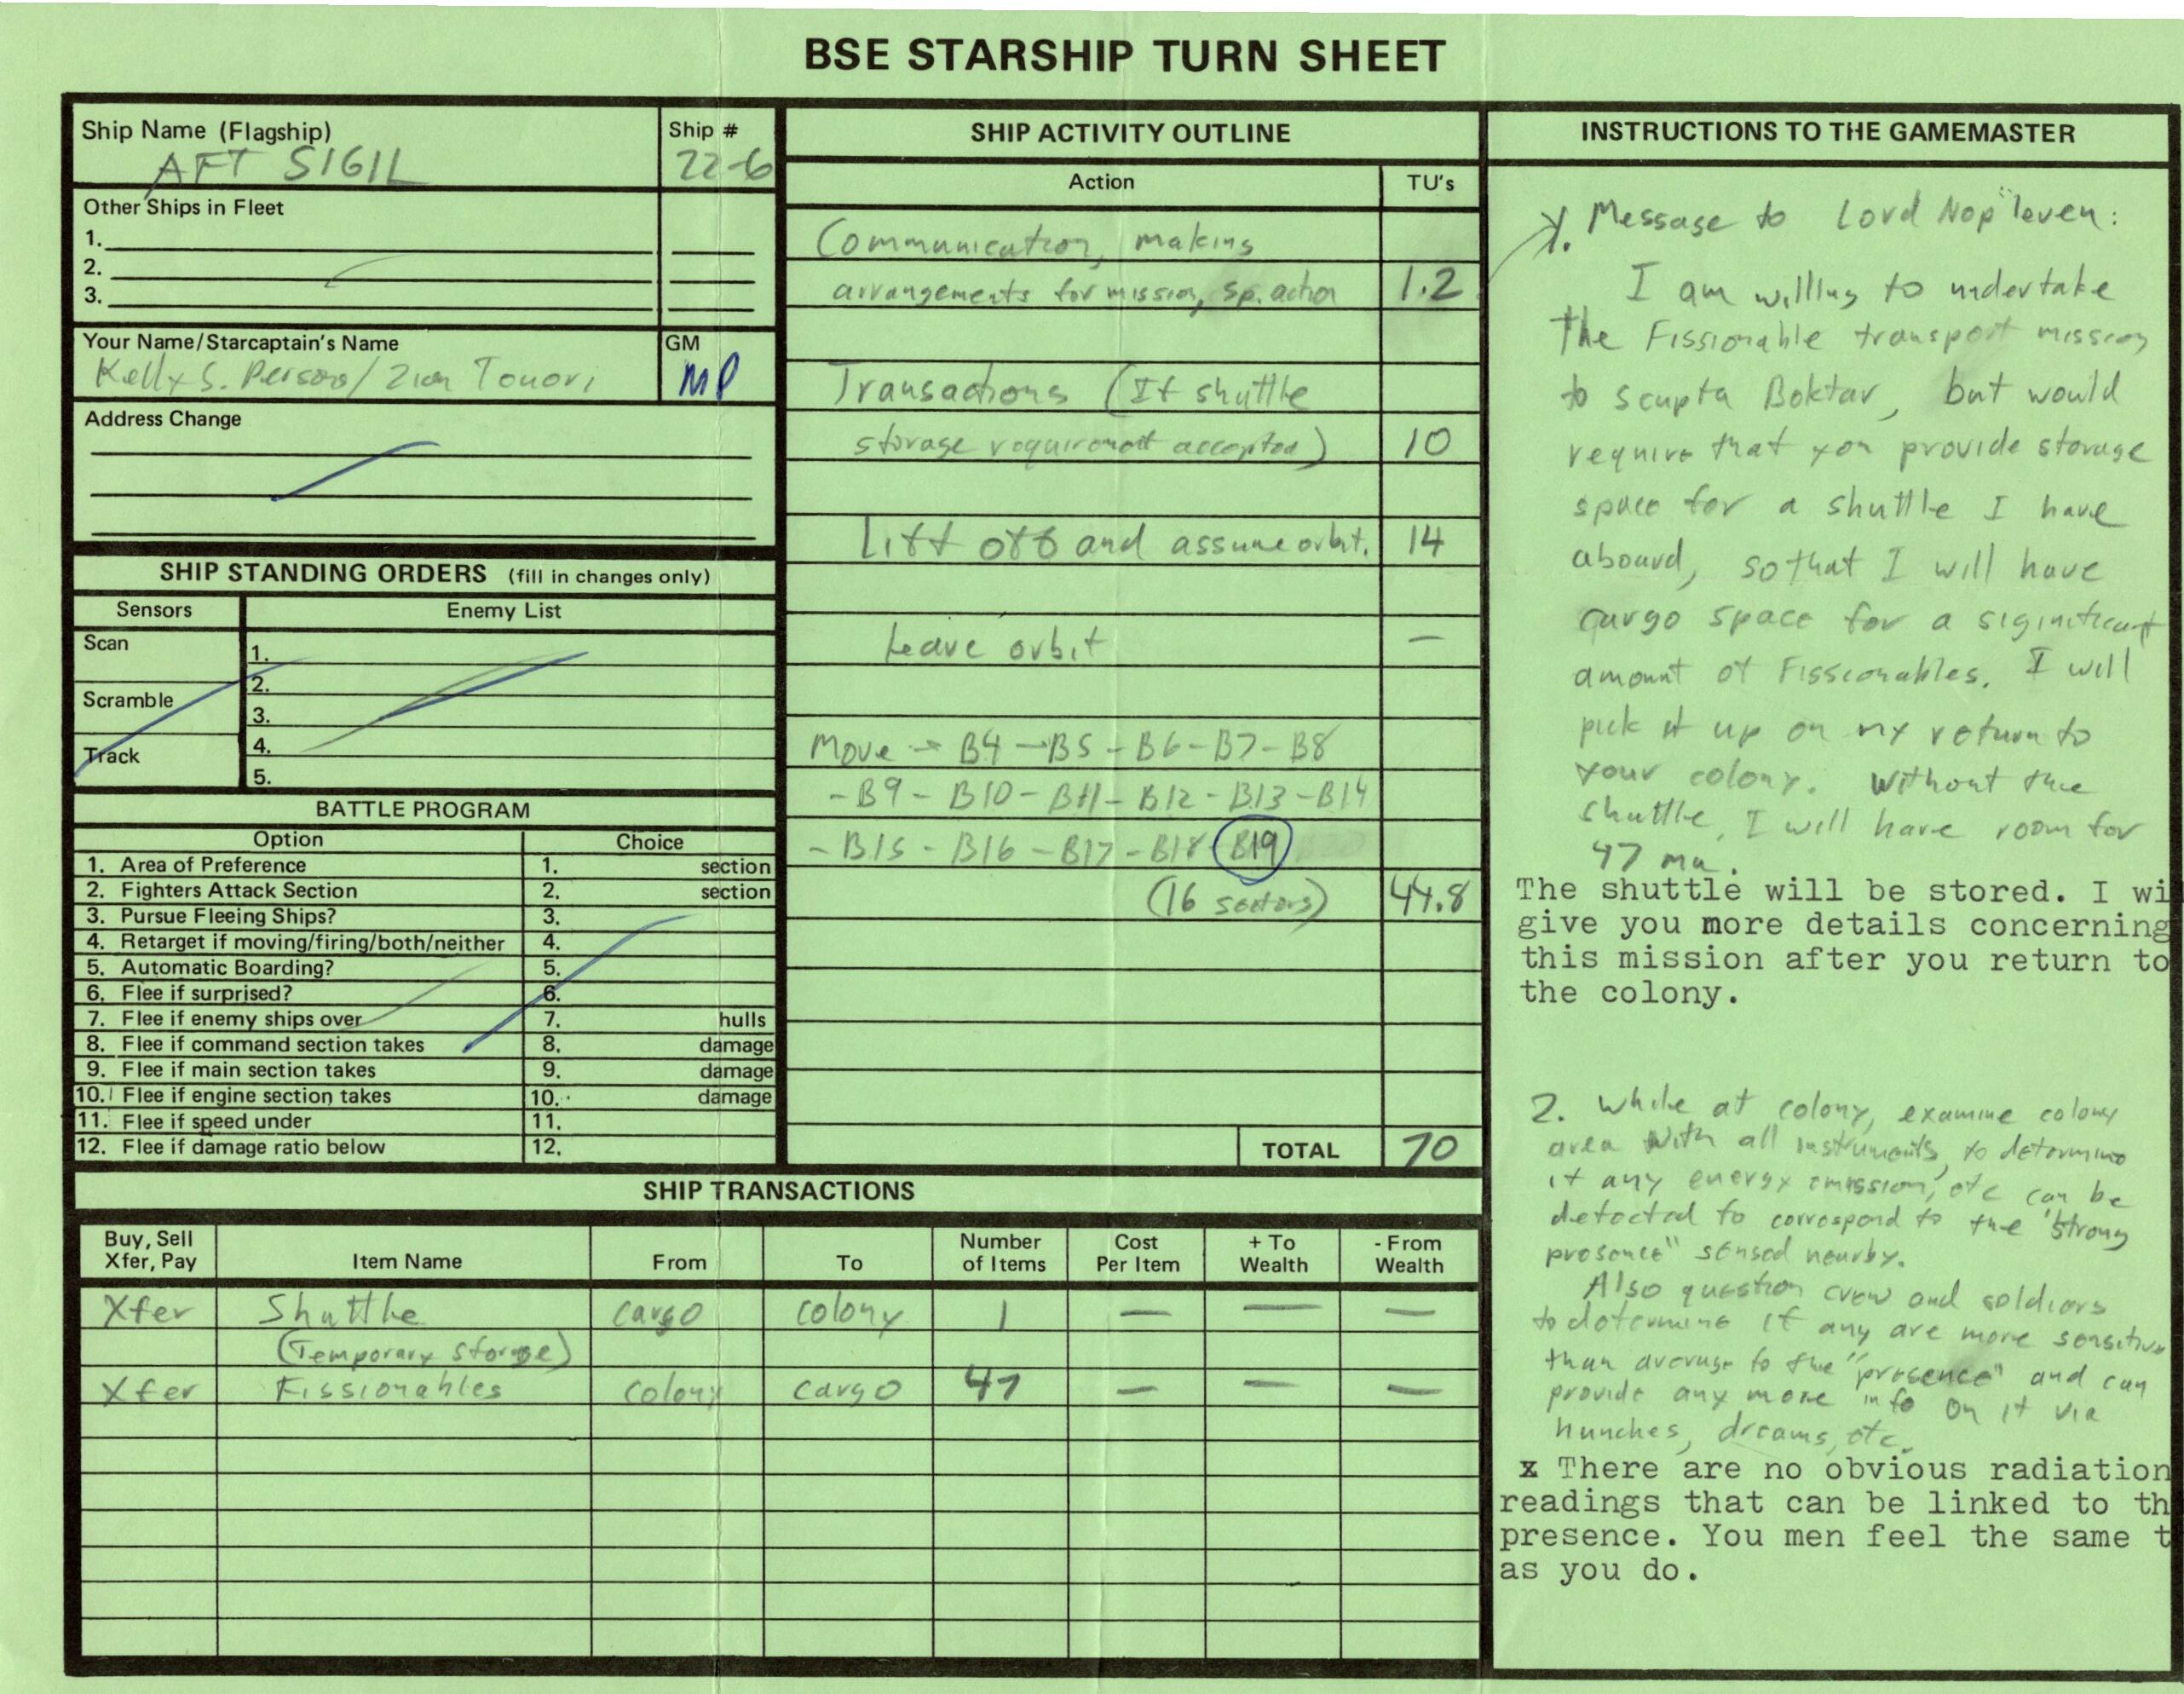 BSE STARSHIP TURN SHEET
Ship Name (Flagship)
AFT SIGIL
Ship #
22-6
Other Ships in Fleet
1.
2.
3.
Your Name/Starcaptain's Name
Kelly S. Person/Zion Tonori
GM
MP
Address Change
SHIP STANDING ORDERS (fill in changes only)
Sensors
Enemy List
Scan
Scramble
Track
1.
2.
3.
4.
5.
BATTLE PROGRAM
Option
Choice
1. Area of Preference 1. section
2. Fighters Attack Section 2. section
3. Pursue Fleeing Ships? 3.
4. Retarget if moving/firing/both/neither 4.
5. Automatic Boarding? 5.
6. Flee if surprised? 6.
7. Flee if enemy ships over 7. hulls
8. Flee if command section takes 8. damage
9. Flee if main section takes 9. damage
10. Flee if engine section takes 10. damage
11. Flee if speed under 11.
12. Flee if damage ratio below 12.
SHIP ACTIVITY OUTLINE
Action TU's
Communication, making
arrangements for mission, sp. action 1.2
Transactions (If shuttle
storage requirement accepted) 10
Lift off and assume orbit. 14
Leave orbit —
Move → B4 — B5 - B6 - B7 - B8
- B9 - B10 - B11 - B12 - B13 - B14
- B15 - B16 - B17 - B18 B19
(16 sectors) 44.8
TOTAL 70
INSTRUCTIONS TO THE GAMEMASTER
1. Message to Lord Nop"leven:
I am willing to undertake
the Fissionable transport mission
to scupta Boktar, but would
require that you provide storage
space for a shuttle I have
aboard, so that I will have
cargo space for a siginificant
amount of Fissionables. I will
pick it up on my return to
your colony. Without the
shuttle, I will have room for
47 mu.
The shuttle will be stored. I wi
give you more details concerning
this mission after you return to
the colony.
2. While at colony, examine colony
area with all instruments, to determine
if any energy emission, etc can be
detected to correspond to the "strong
presence" sensed nearby.
Also question crew and soldiers
to determine if any are more sensitive
than average to the "presence" and can
provide any more info on it via
hunches, dreams, etc.
x There are no obvious radiation
readings that can be linked to th
presence. You men feel the same t
as you do.
SHIP TRANSACTIONS
Buy, Sell
Xfer, Pay
Item Name
From
To
Number
of Items
Cost
Per Item
+ To
Wealth
- From
Wealth
Xfer Shuttle cargo colony 1 — — —
(Temporary storage)
Xfer Fissionables colony cargo 47 — — —